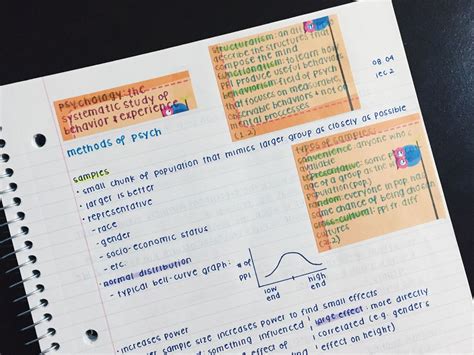 psychology: the
systematic study of
behavior & experience
structuralism: an
describe the structures that
compose the mind
functionalism: to learn how
ppl produce useful behaviors
behaviorism: field of psych
that focuses on measurable,
observable behaviors & not on
mental processes
(1.2)
08 04
lec 2
methods of psych
samples
- small chunk of population that mimics larger group as closely as possible
- larger is better
- representative
- race
- gender
- socio-economic status
- etc.
- normal distribution
- typical bell-curve graph:
# of
ppl
low
end
high
end
types of samples:
convenience: anyone who's
available
representative: some
age of a group as the
population (pop)
random: everyone in pop has
same chance of being chosen
cross-cultural: ppl fr diff
cultures
(2.2)
- increases power
sample size increases power to find small effects
something influenced
effect of
large effect: more directly
correlated (e.g. gender's
effect on height)